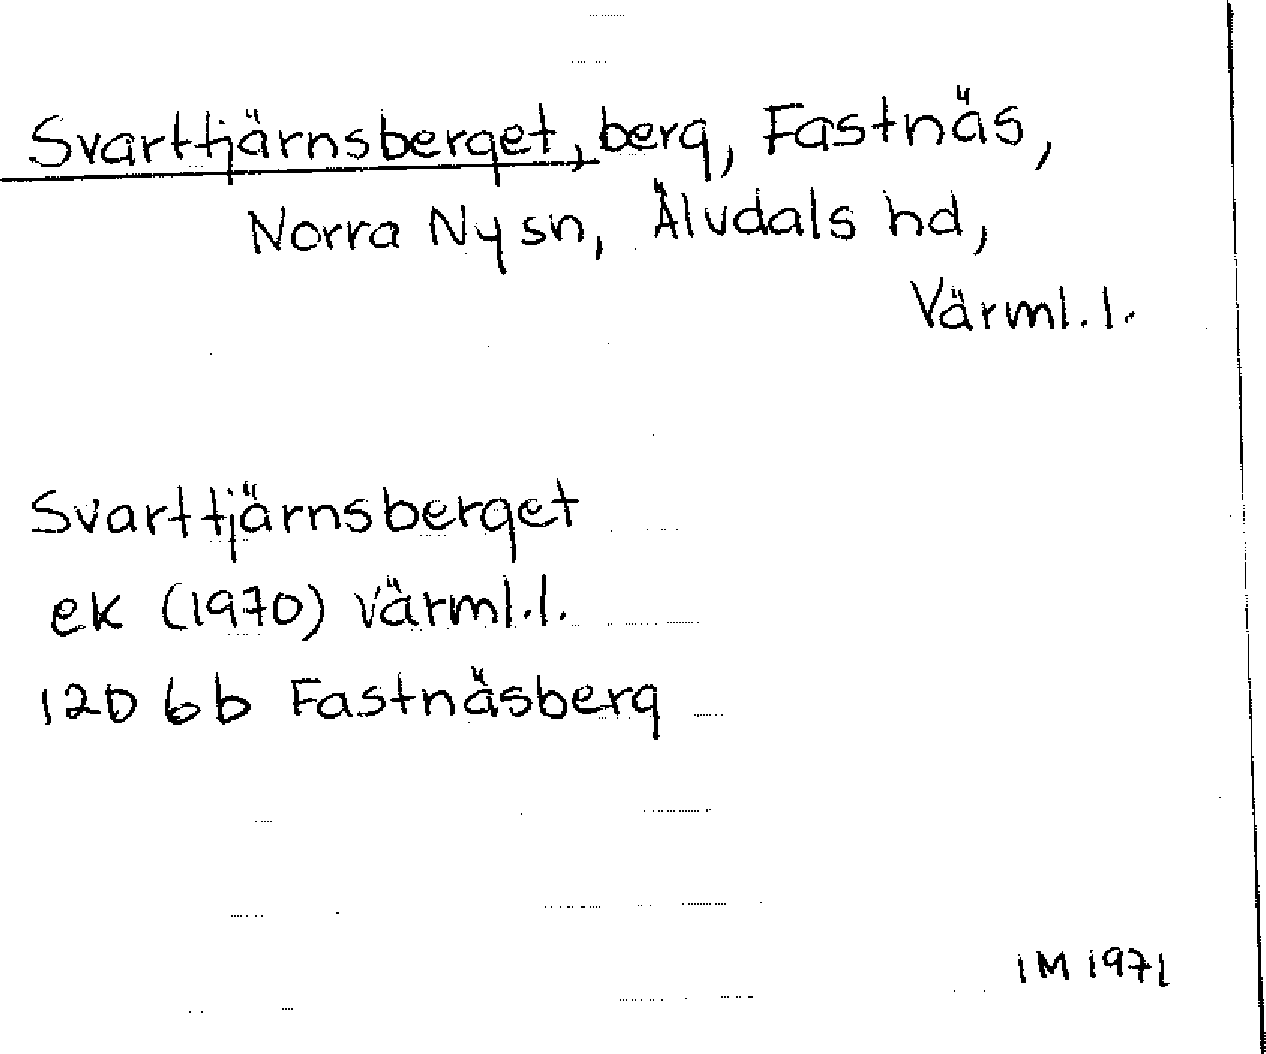 Svarttjärnsberget, berg, Fastnäs,
Norra Ny sn, Älvdals hd,
Värml. l.
Svarttjärnsberget
ek (1970) Värml. l.
12D 6b Fastnäsberg
IM 1971